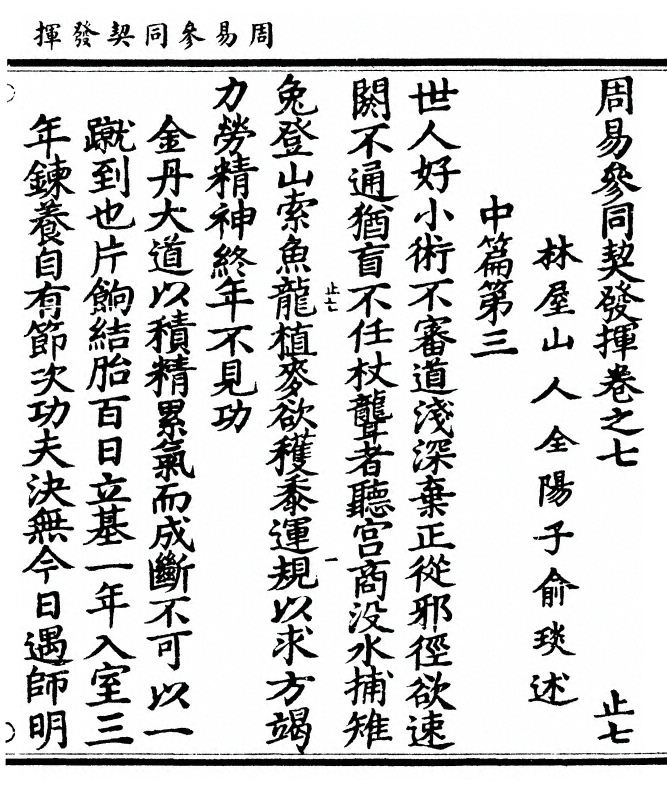 周易參同契發揮
周易參同契發揮卷之七
止七
林屋山人全陽子俞琰述
中篇第三
世人好小術不審道淺深棄正從邪徑欲速
闕不通猶盲不任杖聾者聽宮商没水捕雉
兔登山索魚龍植麥欲穫黍運規以求方竭
止七
一
力勞精神終年不見功
金丹大道以積精累氣而成斷不可以一
蹴到也片餉結胎百日立基一年入室三
年鍊養自有節次功夫決無今日遇師明